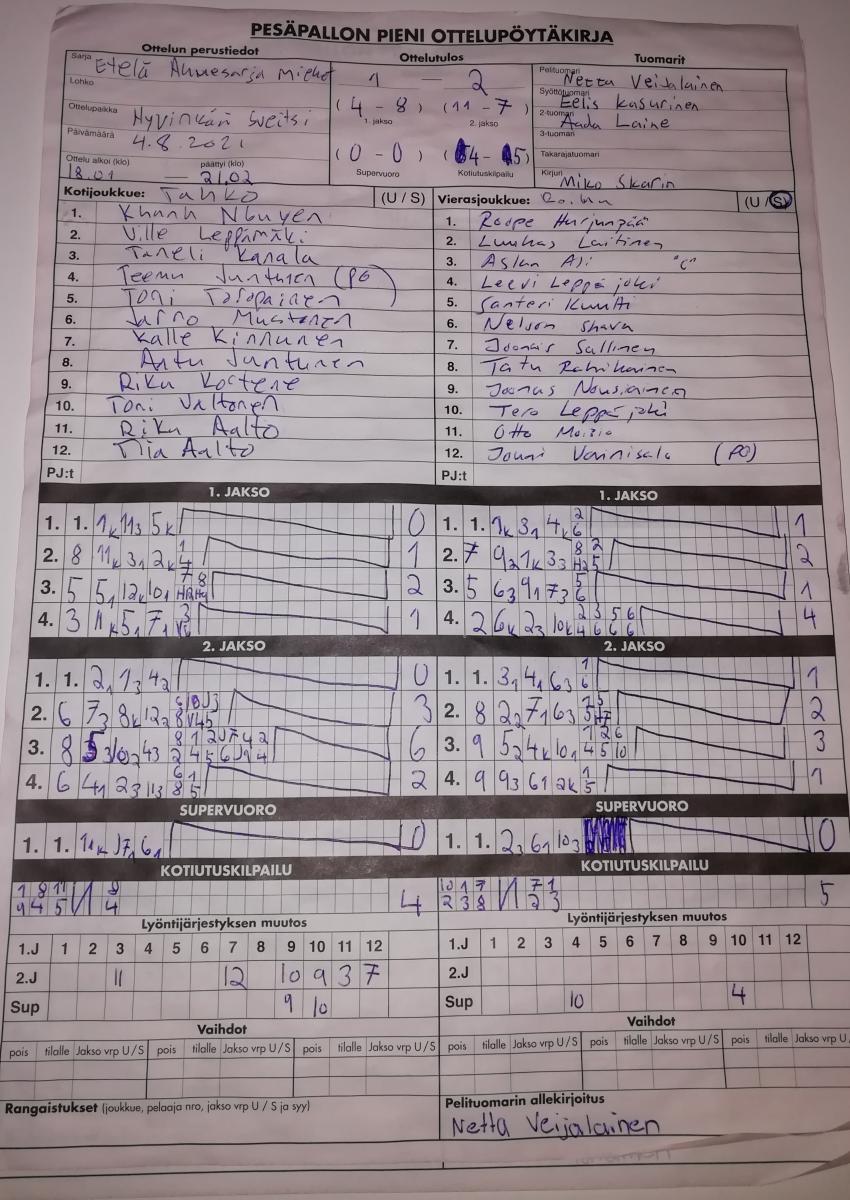 PESÄPALLON PIENI OTTELUPÖYTÄKIRJA
Ottelun perustiedot
Ottelutulos
Tuomarit
Sarja Etelä
Lohko
Ottelupaikka Hyvinkään Sveitsi
Päivämäärä 4.8.2021
Ottelu alkoi (klo) päättyi (klo)
18.01 — 21,02
1 — 2
(4-8) (11-7)
1. jakso 2. jakso
(0-0) (4-5)
Supervuoro Kotiutuskilpailu
Pelituomari Netta Veijalainen
Syöttötuomari Eelis Kasurinen
2-tuomari Aada Laine
3-tuomari
Takarajatuomari
Kirjuri Miko Skarin
Kotijoukkue: Tahko (U / S)
1. Khanh Nguyen
2. Ville Leppämäki
3. Taneli Kanala
4. Teemu Juntunen (PO
5. Toni
6. Jarno Mustonen
7. Kalle Kinnunen
8. Antu Juntunen
9. Riku
10. Toni Valtonen
11. Riku Aalto
12. Mia Aalto
PJ:t
Vierasjoukkue: (U / S)
1. Roope Harjunpää
2. Luukas Laitinen
3. Aslan Ali "C"
4. Leevi Leppäjoki
5. Santeri Kuutti
6. Nelson Shava
7. Joonas Sallinen
8. Tatu
9. Joonas Nousiainen
10. Tero Leppäjoki
11. Otto Moisio
12. Jouni Vainisalo (PO)
PJ:t
1. JAKSO
1. 1. 1k 11 3 5k 0
2. 8 11k 3 1 2k 1
3. 5 5 1 12k 10 1 2
4. 3 11k 5 1 7 1 1
1. JAKSO
1. 1. 1k 3 1 4k 1
2. 7 9 2 1k 3 3 2
3. 5 6 3 9 1 7 3 1
4. 2 6k 2 3 10k 4
2. JAKSO
1. 1. 2 1 1 3 4 2 0
2. 6 7 3 8k 12 2 3
3. 8 6
4. 6 4 1 2 3 11 3 2
2. JAKSO
1. 1. 3 1 4 1 6 3 1
2. 8 2 2 7 1 6 3 2
3. 9 5 2 4k 10 1 3
4. 9 9 3 6 1 2k 1
SUPERVUORO
1. 1. 11k 6 1 0
SUPERVUORO
1. 1. 2 3 6 1 10 3 0
KOTIUTUSKILPAILU
1 8 11 8
9 4 5 4 4
KOTIUTUSKILPAILU
10 1 7 7 1
2 3 8 2 3 5
Lyöntijärjestyksen muutos
1.J 1 2 3 4 5 6 7 8 9 10 11 12
2.J 11 12 10 9 3 7
Sup 9 10
Lyöntijärjestyksen muutos
1.J 1 2 3 4 5 6 7 8 9 10 11 12
2.J
Sup 10 4
Vaihdot
pois tilalle Jakso vrp U / S pois tilalle Jakso vrp U / S pois tilalle Jakso vrp U / S
Vaihdot
pois tilalle Jakso vrp U / S pois tilalle Jakso vrp U / S pois tilalle Jakso vrp U
Rangaistukset (joukkue, pelaaja nro, jakso vrp U / S ja syy)
Pelituomarin allekirjoitus
Netta Veijalainen